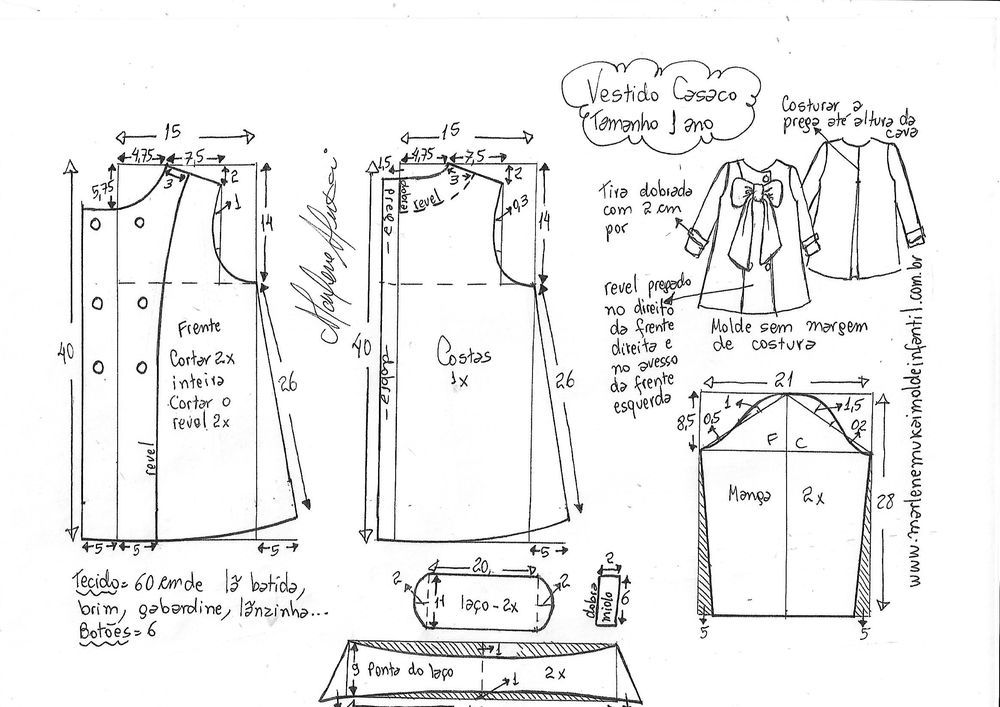 Vestido Casaco
Tamanho 1 ano
Costurar a
prega até altura da
cava
Tira dobrada
com 2 cm
por
revel pregado
no direito
da frente
direita e
no avesso
da frente
esquerda
Molde sem margem
de costura
15
4,75
7,5
5,75
3
2
1
14
40
26
Frente
Cortar 2x
inteira
Cortar o
revel 2x
revel
5
5
5
15
1,5
4,75
7,5
3
2
0,3
14
40
26
Prega
revel
dobra
Costas
1x
5
21
8,5
0,5
1
1,5
0,2
F
C
Manga
2x
28
5
5
www.marlenemukaimoldeinfantil.com.br
Tecido = 60 cm de lã batida,
brim, gabardine, lãnzinha...
Botões = 6
20
2
2
11
laço - 2x
2
dobra
miolo
6
9
Ponta do laço
2x
1
1